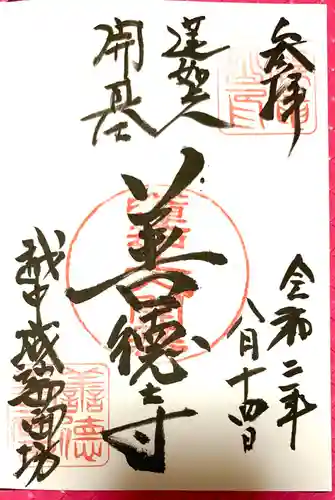 参拝
令和二年
八月十四日
蓮如上人
開基
善德寺
越中城端